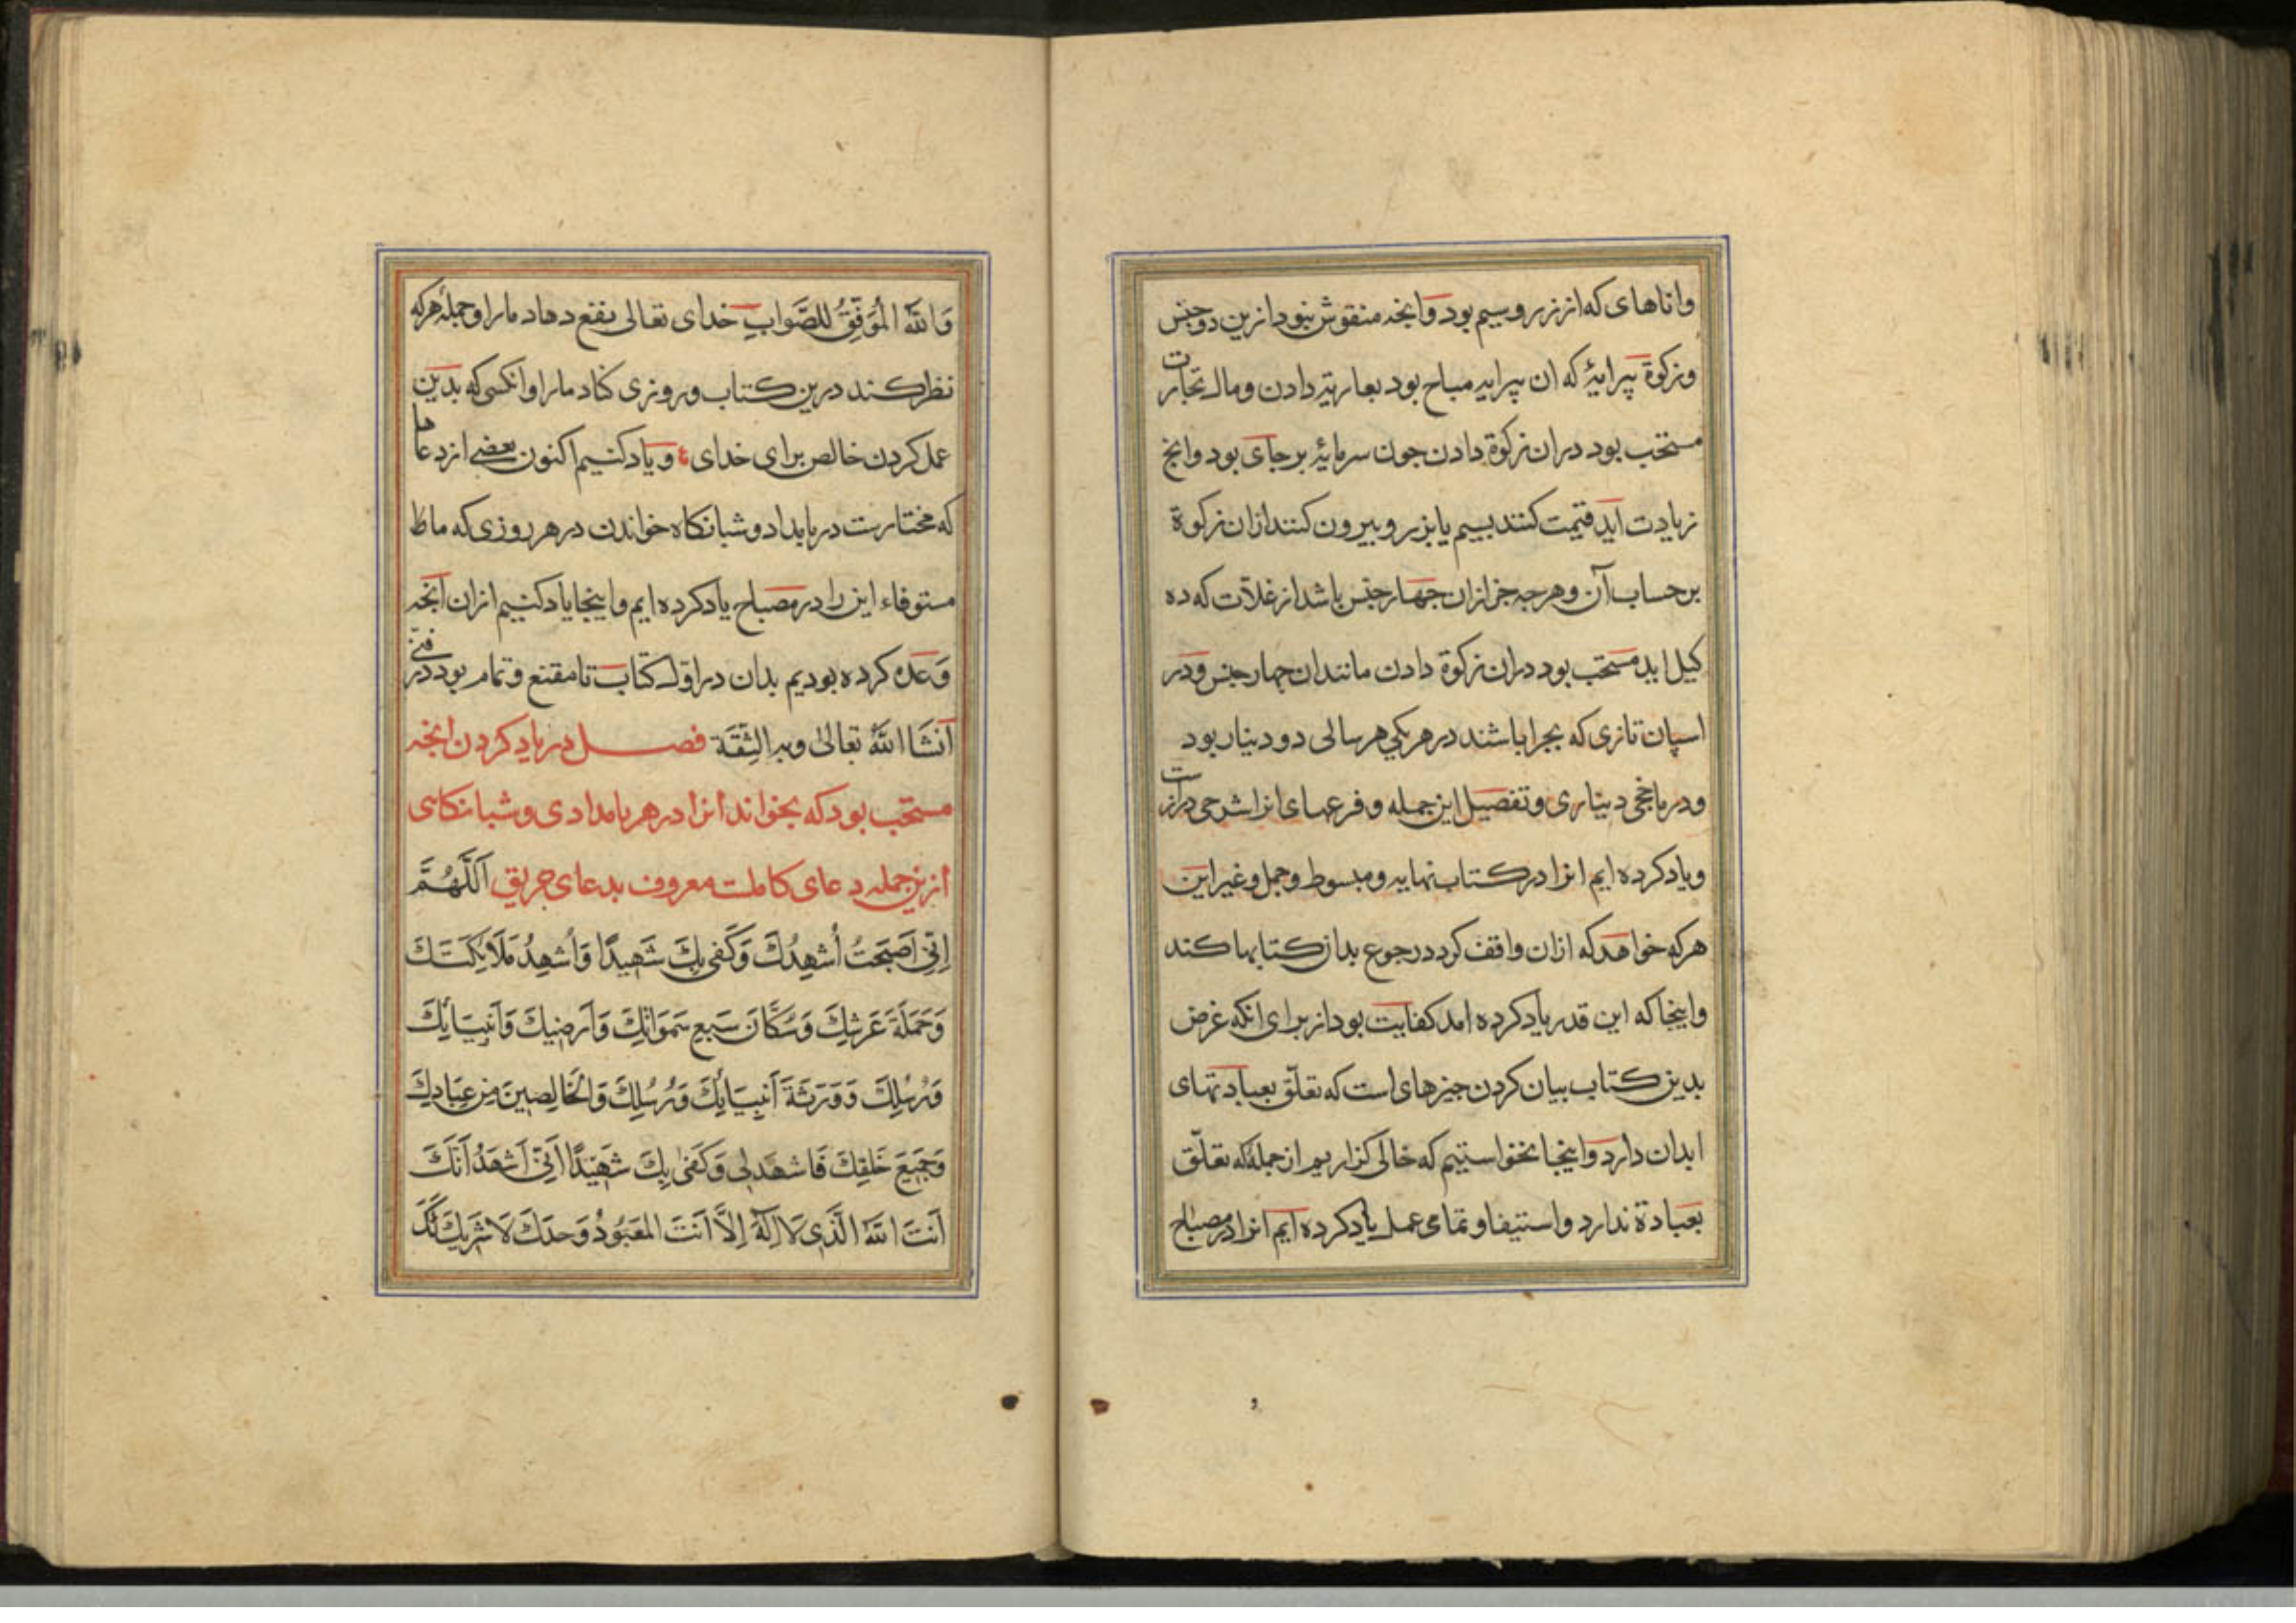 واناهای که از زر و سیم بود وانچه منقوش نبود ازین دو جنس
وزکوة پیرایۀ که ان پیرایه مباح بود بعاریة دادن ومال تجارت
مستحب بود دران زکوة دادن جون سرمایۀ برجای بود وانچ
زیادت اید قیمت کنند بسیم یا بزر و بیرون کنند ازان زکوة
بر حساب آن و هرجه جز ازان جهار جنس باشد از غلات که ده
کیل اید مستحب بود دران زکوة دادن مانند ان جهار جنس ودر
اسپان تازی که بجرا باشند در هر یکی هر سالی دو دینار بود
ودر ماخجی دیناری وتفصیل این جمله و فرعهای انرا شرحی درازست
ویاد کرده ایم انرا در کتاب نهایه ومبسوط وجمل وغیر این
هرکه خواهد که ازان واقف کردد رجوع بدان کتابها کند
واینجا که این قدر یاد کرده امد کفایت بود از برای انکه غرض
بدین کتاب بیان کردن جیزهای است که تعلّق بعبادتهای
ابدان دارد واینجا نخواستیم که خالی کزاریم از جملۀ که تعلّق
بعبادة ندارد واستیفا و تمامی عمل یاد کرده ایم انرا در مصباح
وَاللّٰه المُوَفِّقُ للصَّوابِ خدای تعالی نفع دهاد مارا وجملۀ هرکه
نظر کند درین کتاب وروزی کناد مارا وانکسی که بدین
عمل کردن خالص برای خدای ع و یاد کنیم اکنون بعضی از دعاها
که مختارست در بامداد و شبانکاه خواندن در هر روزی که ماطا
مستوفاء این را در مصباح یاد کرده ایم واینجا یاد کنیم ازان انچه
وَعده کرده بودیم بدان در اوّل کتاب تا مقنع و تمام بود در فنّی
آنشَا اللّٰهُ تعالیٰ وبه الثِقَة فصـــل در یاد کردن انچه
مستحب بود که بخواند انرا در هر بامدادی وشبانکاهی
ازین جمله دعای کاملست معروف بدعای حریق اَللّٰهُمَّ
اِنّی اَصبَحتُ اُشهِدُكَ وَكَفی بِكَ شَهیدًا وَاُشهِدُ مَلَایِكَتَكَ
وَحَمَلَةَ عَرشِكَ وَسُكَّانَ سَبعِ سَمَوَاتِكَ وَاَرضیكَ وَاَنبِیَایِكَ
وَرُسُلِكَ وَوَرَثَةَ اَنبِیَایِكَ وَرُسُلِكَ وَالخَالِصِینَ مِن عِبَادِكَ
وَجَمیعَ خَلقِكَ فَاشهَد لی وَكَفیٰ بِكَ شَهیدًا اَنّی اَشهَدُ اَنَّكَ
اَنتَ اللّٰهُ الَّذی لَا اِلٰهَ اِلَّا اَنتَ المَعبُودُ وَحدَكَ لَا شَریكَ لَكَ